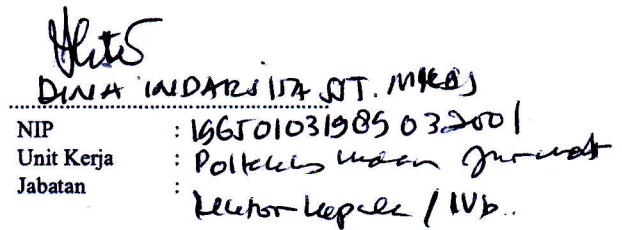 DINA INDARSITA SST. MKES
NIP : 196501031989032001
Unit Kerja : Poltekkes
Jabatan :
Lektor Kepala / IVb..